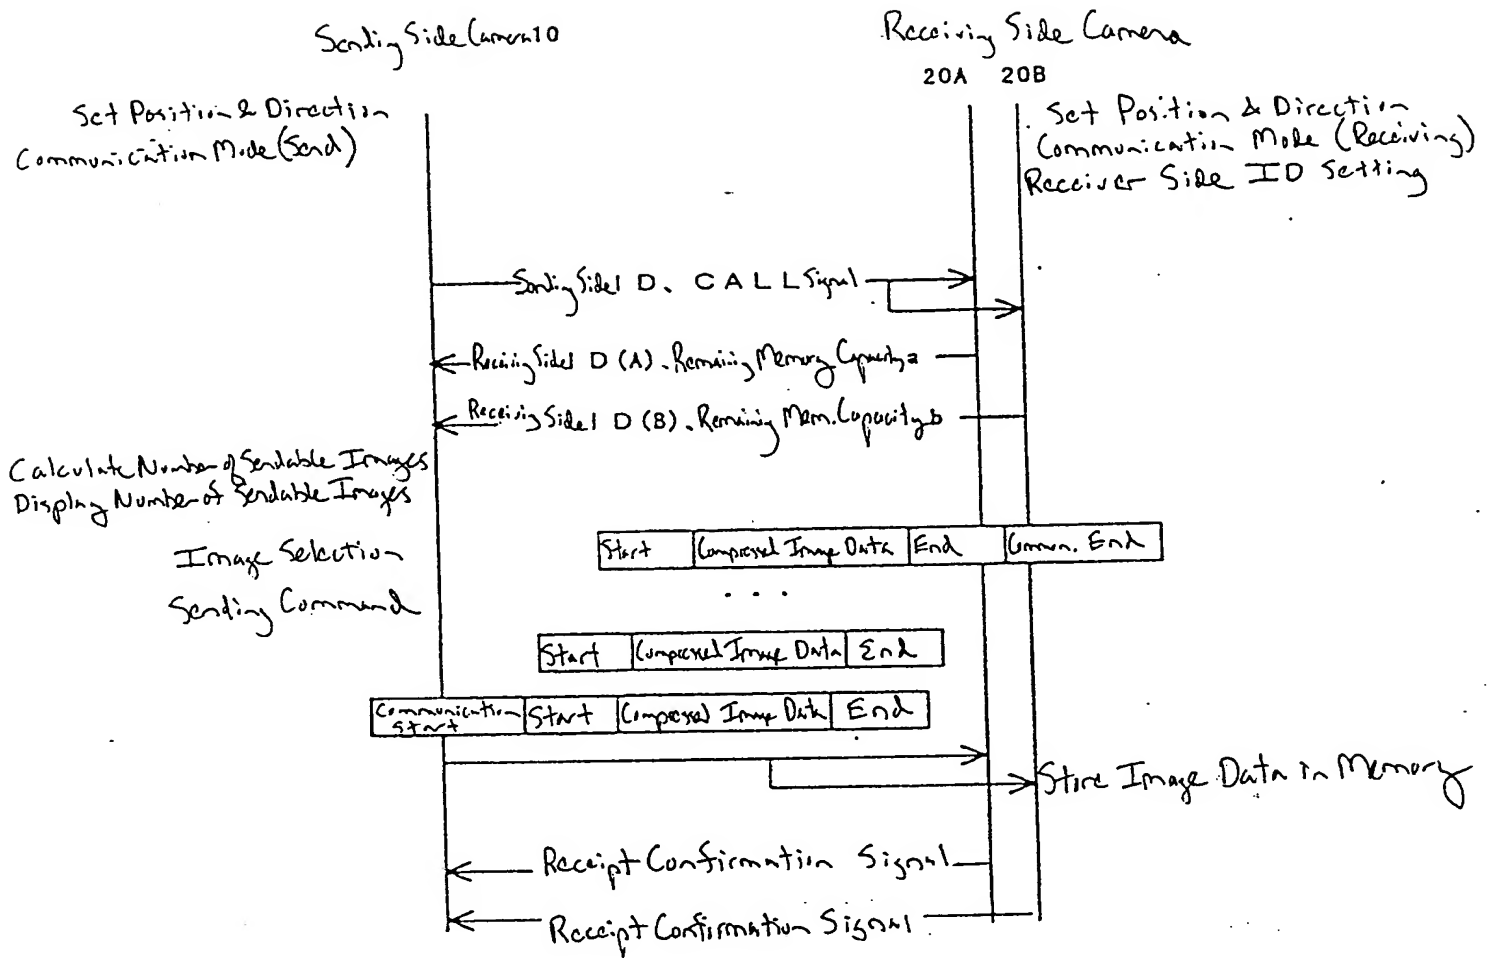 Sending Side Camera 10
Receiving Side Camera
20A 20B
Set Position & Direction
Communication Mode (Send)
Set Position & Direction
Communication Mode (Receiving)
Receiver Side ID Setting
Sending Side I D. C A L L Signal
Receiving Side I D (A). Remaining Memory Capacity a
Receiving Side I D (B). Remaining Mem. Capacity b
Calculate Number of Sendable Images
Display Number of Sendable Images
Image Selection
Sending Command
Start Compressed Image Data End Commun. End
. . .
Start Compressed Image Data End
Communication Start Start Compressed Image Data End
Store Image Data in Memory
Receipt Confirmation Signal
Receipt Confirmation Signal